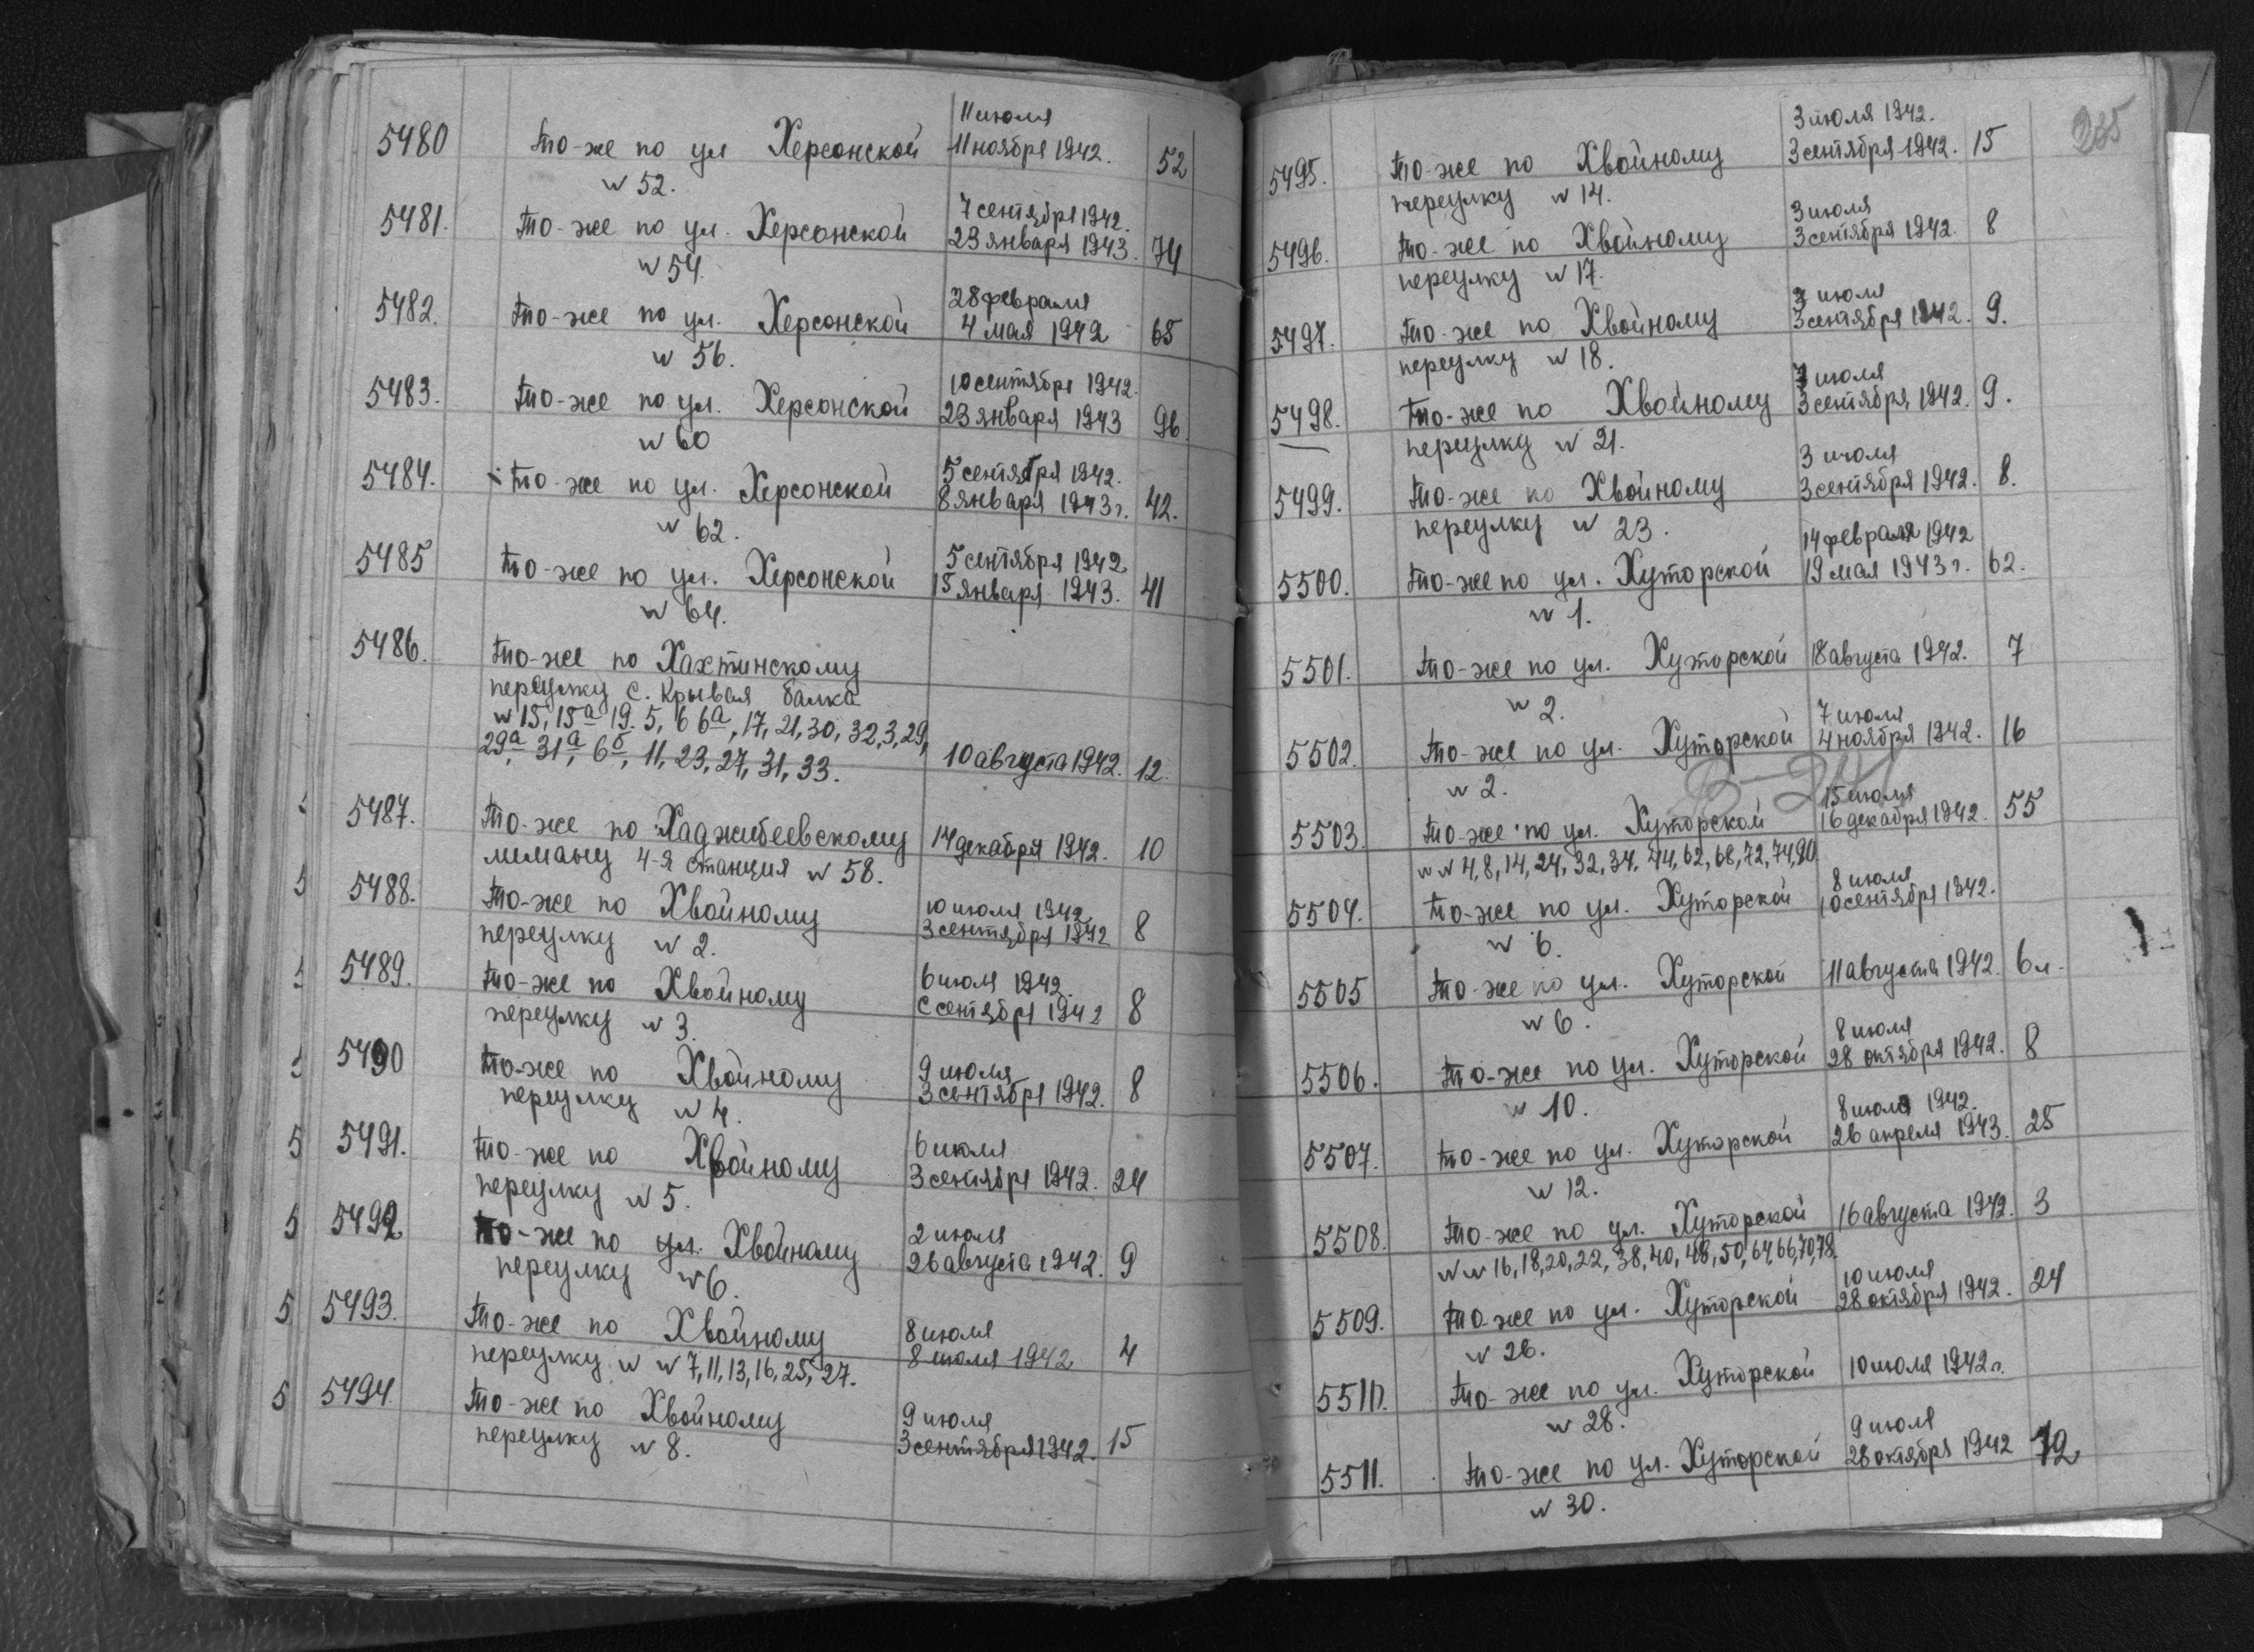 11 июля
5480 то-же по ул Херсонской 11 ноября 1942. 52
N 52.
7 сентября 1942.
5481. то-же по ул. Херсонской 23 января 1943. 74
N 54.
28 февраля
5482. то-же по ул. Херсонской 4 мая 1942 65
N 56.
10 сентября 1942.
5483. то-же по ул. Херсонской 23 января 1943 96
N 60
5 сентября 1942.
5484. то-же по ул. Херсонской 8 января 1943 г. 42.
N 62.
5 сентября 1942
5485 то-же по ул. Херсонской 15 января 1943. 41
N 64.
5486. то-же по Хахтинскому
переулку с. Крывая балка
N 15, 15а 19. 5, 6 6а, 17, 21, 30, 32, 3, 29,
29а, 31а, 6б, 11, 23, 27, 31, 33. 10 августа 1942. 12.
5487. то-же по Хаджибеевскому 14 декабря 1942. 10
лиману 4-я станция N 58.
5488. то-же по Хвойному 10 июля 1942
переулку N 2. 3 сентября 1942 8
5489. то-же по Хвойному 6 июля 1942.
переулку N 3. сентября 1942 8
5490 то-же по Хвойному 9 июля
переулку N 4. 3 сентября 1942. 8
5491. то-же по Хвойному 6 июля
переулку N 5. 3 сентября 1942. 24
5492 то-же по ул. Хвойному 2 июля
переулку N 6. 26 августа 1942. 9
5493. то-же по Хвойному 8 июля
переулку N N 7, 11, 13, 16, 25, 27. 8 июля 1942 4
5494. то-же по Хвойному 9 июля
переулку N 8. 3 сентября 1942. 15
235
3 июля 1942.
5495. то-же по Хвойному 3 сентября 1942. 15
переулку N 14.
3 июля
5496. то-же по Хвойному 3 сентября 1942. 8
переулку N 17.
7 июля
5497. то-же по Хвойному 3 сентября 1942. 9.
переулку N 18.
7 июля
5498. то-же по Хвойному 3 сентября 1942. 9.
переулку N 21.
3 июля
5499. то-же по Хвойному 3 сентября 1942. 8.
переулку N 23.
14 февраля 1942
5500. то-же по ул. Хуторской 19 мая 1943 г. 62.
N 1.
5501. то-же по ул. Хуторской 18 августа 1942. 7
N 2.
7 июля
5502. то-же по ул. Хуторской 4 ноября 1942. 16
N 2.
15 июля
5503. то-же по ул. Хуторской 16 декабря 1942. 55
N N 4, 8, 14, 24, 32, 34, 44, 62, 68, 72, 74, 90.
8 июля
5504. то-же по ул. Хуторской 10 сентября 1942.
N 6.
5505 то-же по ул. Хуторской 11 августа 1942. 6 л.
N 6.
8 июля
5506. то-же по ул. Хуторской 28 октября 1942. 8
N 10.
8 июля 1942.
5507. то-же по ул. Хуторской 26 апреля 1943. 25
N 12.
5508. то-же по ул. Хуторской 16 августа 1942. 3
N N 16, 18, 20, 22, 38, 40, 48, 50, 64, 66, 70, 78.
10 июля
5509. то-же по ул. Хуторской 28 октября 1942. 24
N 26.
5510. то-же по ул. Хуторской 10 июля 1942 г.
N 28.
9 июля
5511. то-же по ул. Хуторской 28 октября 1942 12
N 30.